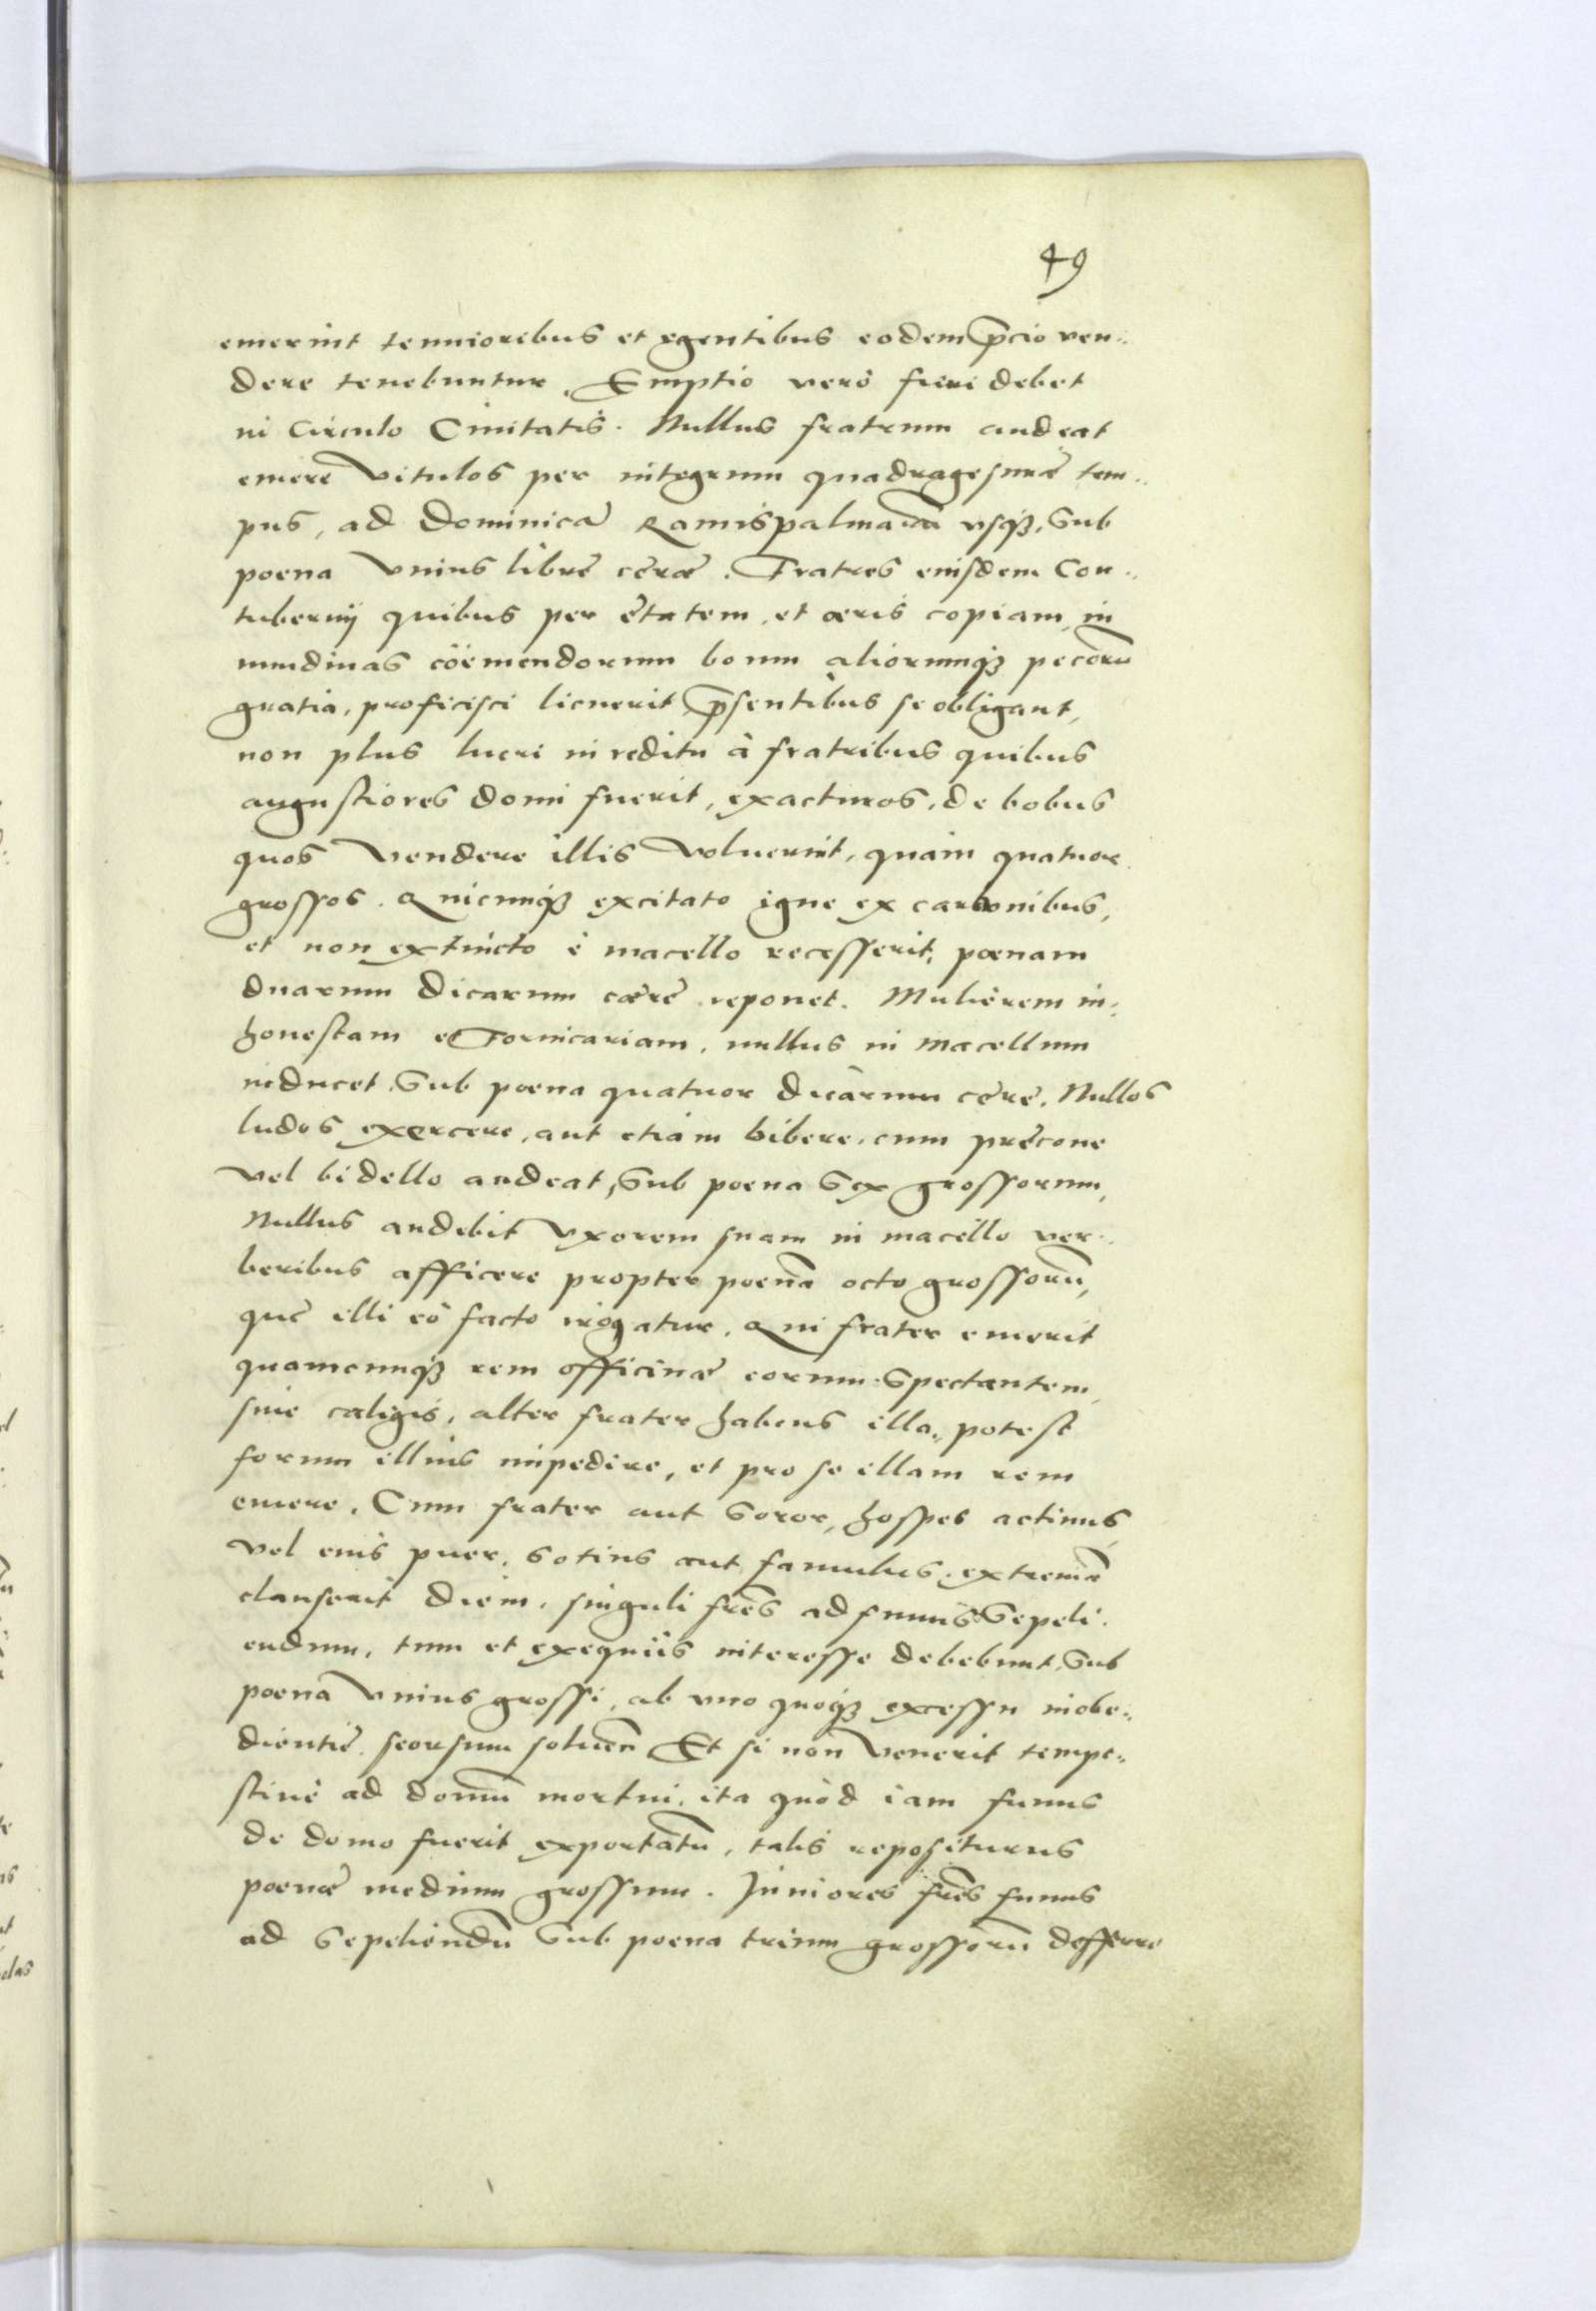 49
emerint tenuioribus et egentibus eodem p̄cio ven..
dere tenebuntur. Emptio verò fieri debet
in Circulo Ciuitatis. Nullus fratrum audeat
emere Vitulos per integrum quadragesimæ tem..
pus, ad Dominicā Ramispalmarū vsq3, Sub
poena Vnius libre cerae. Fratres eiusdem Con..
tubernij quibus per ętatem, et aeris copiam, in
nundinas coëmendorum boum aliorumq3 pecorū
gratia, proficisci licuerit, p̄sentibus se obligant,
non plus lucri in reditu à fratribus quibus
angustiores domi fuerit, exacturos, de bobus
quos Vendere illis Voluerint, quàm quatuor
grossos. Quicunq3 excitato igne ex carbonibus,
et non extincto è macello recesserit, poenam
duarum dicarum caere reponet. Mulierem in..
honestam et Fornicariam, nullus in Macellum
inducet Sub poena quatuor dicarum cere. Nullos
ludos exercere, aut etiam bibere, cum precone
vel bidello audeat, Sub poena Sex grossorum,
Nullus audebit Vxorem suam in macello ver..
beribus afficere propter poenā octo grossorū,
que illi eò facto irogatur. Qui frater emerit
quamcunq3 rem officinæ eorum Spectantem,
siue caligis, alter frater habens illa, potest
forum illius impedire, et pro se illam rem
emere. Cum frater aut Soror, hospes actinus,
vel eius puer, Sotius aut famulus, extremā
clauserit Diem, singuli frēs ad funus Sepeli..
endum, tum et exequiis interesse debebunt, Sub
poena Vnius grossi, ab vno quoq3 excessu inobe..
dientie, seorsum soluen̄ Et si non Venerit tempe..
stiuè ad domū mortui, ita quòd iam funus
de domo fuerit exportatū, talis repositurus
poenæ medium grossum. Iuniores frēs funus
ad Sepeliendū Sub poena trium grossorū defferre